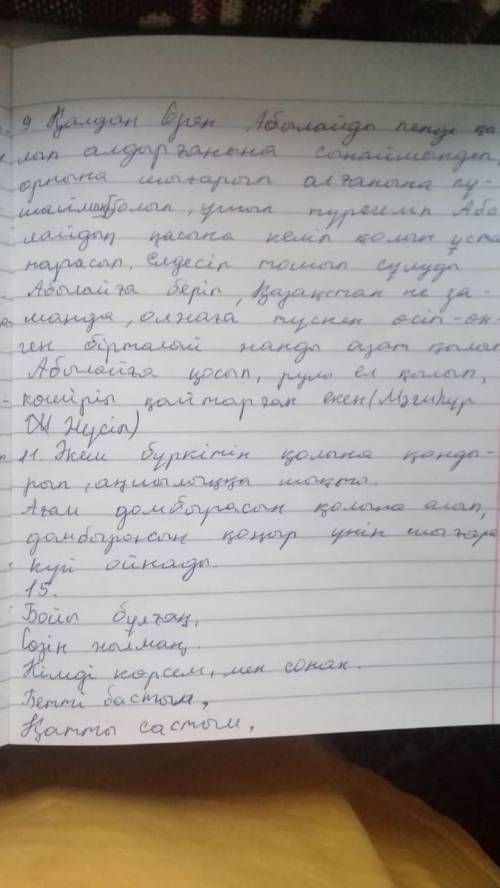 9 Қалдан Серен Абылайды пенде қы
лып алдырғанына сынаймындеп,
орнына шығарып алғанына құ-
шаймыз болып, ұшып түрегеліп Абы
лайдың қасына келіп қолын ұста
нарасып, Елдесіп томып сұлуды
Абылайға беріп, Қазақстан не за-
манда, олжаға түскен өсіп-өн-
ген бірталай жанды азат қылып
Абылайға қосып, рулы ел қылып,
көшіріп қайтарған екен (Мәшһүр
Ж Жүсіп)
11. Әкем бүркітін қолына қонды-
рып, аңшылыққа шықты.
Ағам домбырасын қолына алып,
домбырасын қоңыр үнін шығара
күй ойнады.
15.
Бойы бұлғаң,
Сөзің жылмаң,
Кімді көрсем, мен сонан.
Бетті бастым,
Қатты састым,